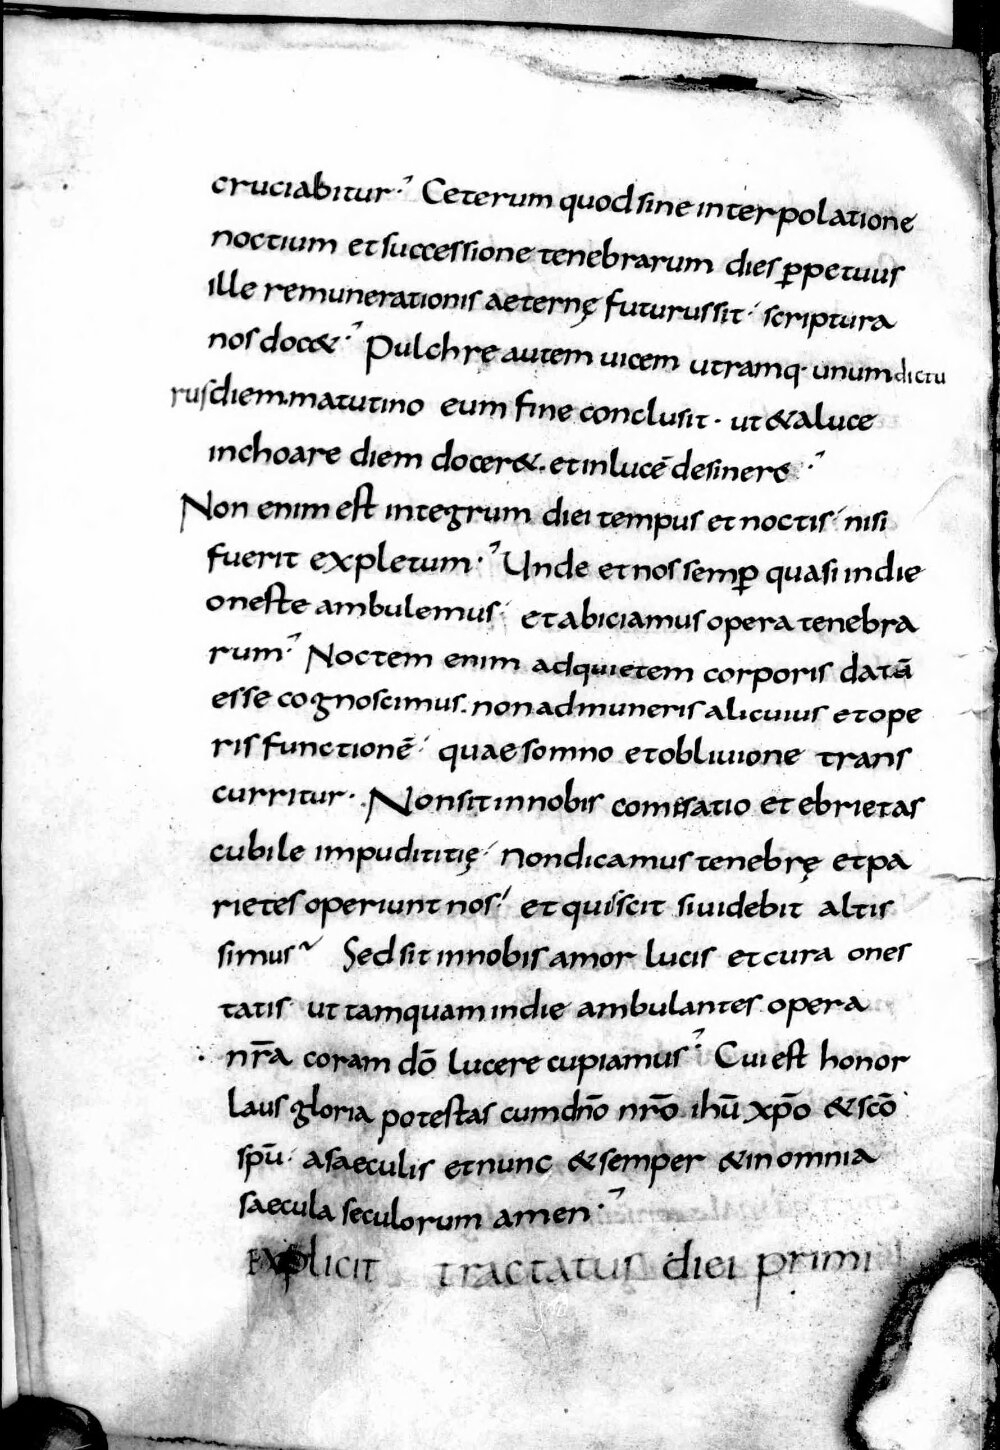 cruciabitur·⁊ Ceterum quod sine interpolatione
noctium et successione tenebrarum dies ꝑpetuus
ille remunerationis aeternę futurus sit· scriptura
nos doc&·⁊ Pulchre autem uicem utramq· unum dictu
rus diem. matutino eum fine conclusit· ut & a luce
inchoare diem docer&. et in lucē desinere·⁊
Non enim est integrum diei tempus et noctis· nisi
fuerit expletum·⁊ Unde et nos semꝑ quasi in die
oneste ambulemus· et abiciamus opera tenebra
rum⁊ Noctem enim ad quietem corporis datū
esse cognoscimus. non ad muneris alicuius et ope
ris functionē· quae somno et obliuione trans
curritur·. Non sit in nobis comesatio et ebrietas
cubile impudititię· non dicamus tenebrę et pa
rietes operiunt nos· et quis scit si uidebit altis
simus~ Sed sit in nobis amor lucis et cura ones
tatis· ut tamquam in die ambulantes opera
nr̄a coram dō lucere cupiamus·⁊ Cui est honor
laus gloria potestas cum dn̄o nr̄o ihū xp̄o & scō
spū· a saeculis et nunc & semper & in omnia
saecula seculorum amen·⁊
Explicit tractatus diei primi